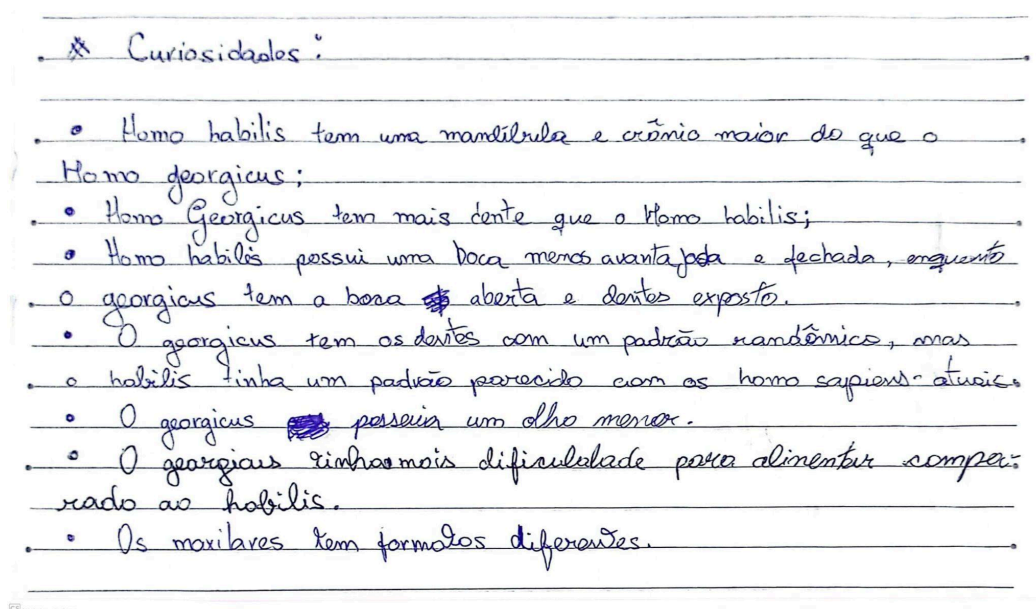 * Curiosidades:
• Homo habilis tem uma mandíbula e crânio maior do que o
Homo georgicus;
• Homo Georgicus tem mais dente que o Homo habilis;
• Homo habilis possui uma boca menos avantajada e fechada, enquanto
o georgicus tem a boca aberta e dentes exposto.
• O georgicus tem os dentes com um padrão randômico, mas
o habilis tinha um padrão parecido com os homo sapiens atuais.
• O georgicus possuia um olho menor.
• O georgicus tinha mais dificuldade para alimentar compa-
rado ao habilis.
• Os maxilares tem formatos diferentes.